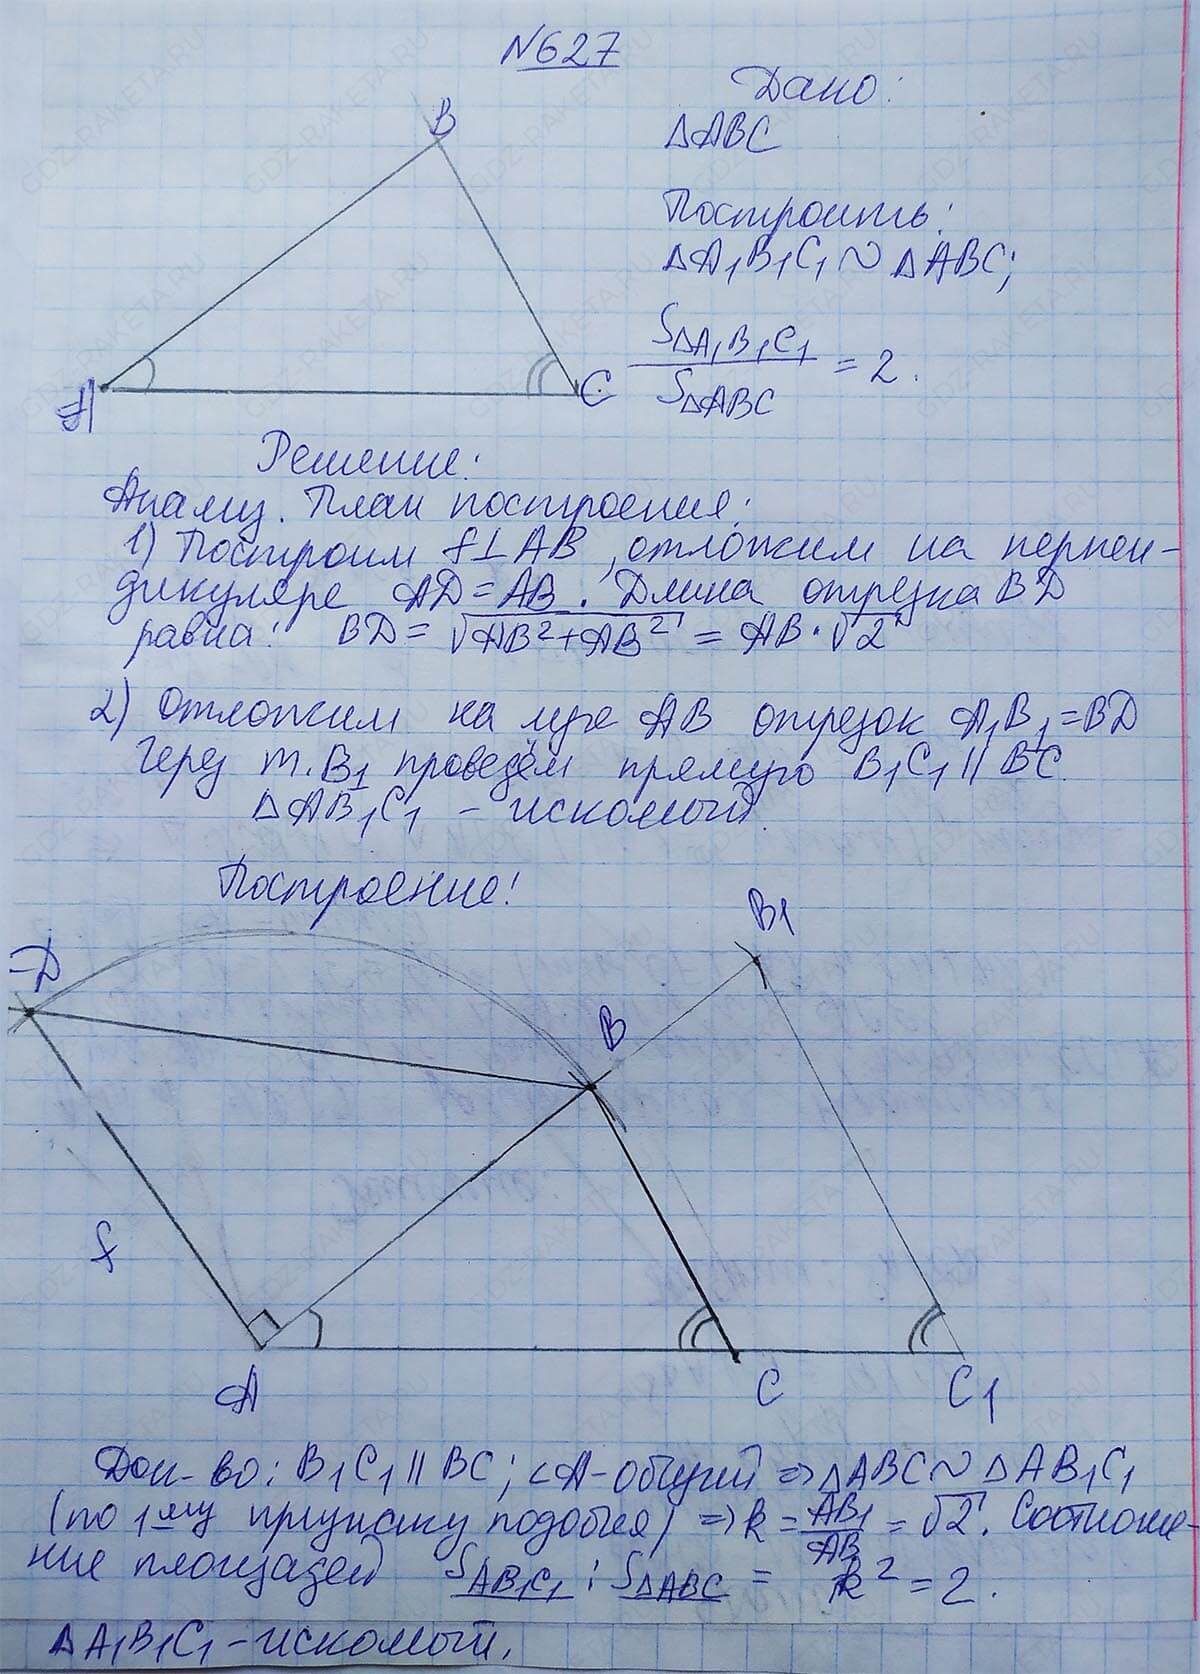 №627
Дано:
△ABC
Построить:
△A₁B₁C₁ ~ △ABC;
S△A₁B₁C₁ / S△ABC = 2.
B
A
C
Решение:
Анализ. План построения:
1) Построим f⊥AB, отложим на перпен-
дикуляре AD=AB. Длина отрезка BD
равна: BD = √(AB²+AB²) = AB·√2
2) Отложим на луче AB отрезок A₁B₁=BD
Через т.B₁ проведём прямую B₁C₁ || BC.
△AB₁C₁ – искомый.
Построение!
D
B
B1
f
A
C
C1
Док-во: B₁C₁ || BC; ∠A-общий ⇒ △ABC ~ △AB₁C₁
(по 1му признаку подобия) ⇒ k = AB₁/AB = √2. Соотноше-
ние площадей S AB₁C₁ : S△ABC = k² = 2.
△A₁B₁C₁ – искомый.
GDZ-RAKETA.RU